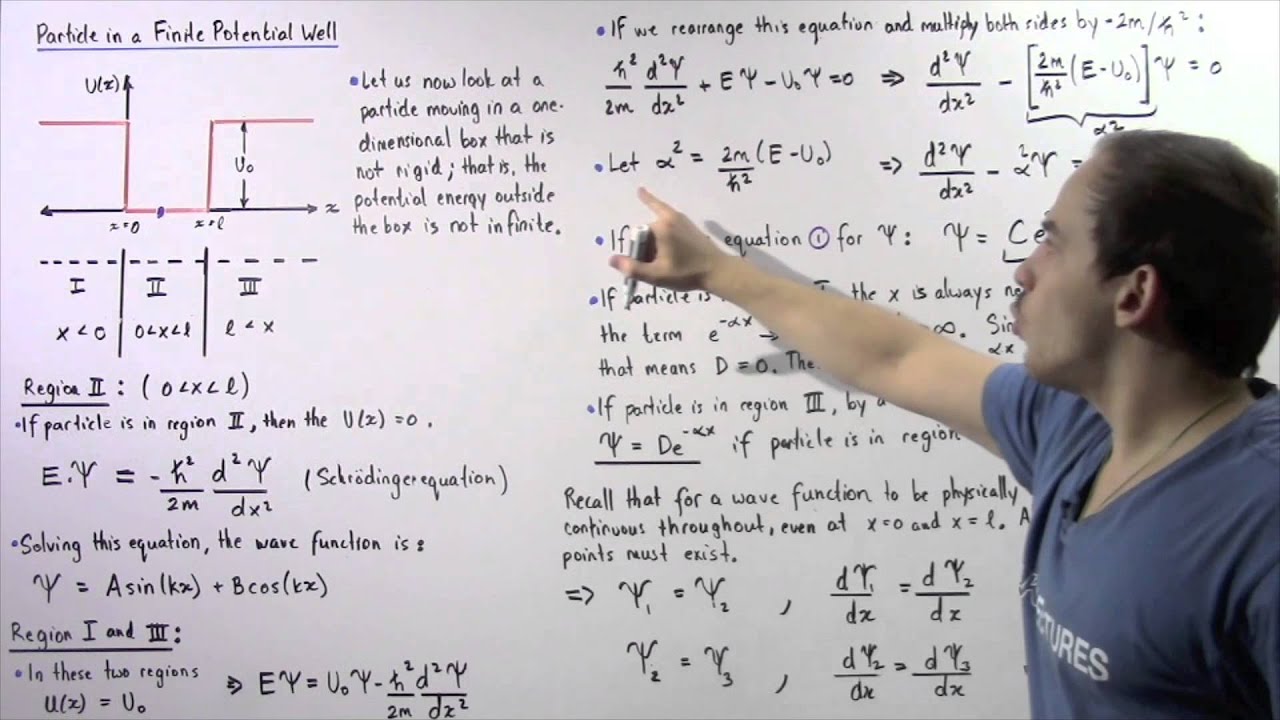 Particle in a Finite Potential Well
U(x)
U₀
x
x=0
x=l
I II III
x < 0 0<x<l l < x
• Let us now look at a
particle moving in a one-
dimensional box that is
not rigid; that is, the
potential energy outside
the box is not infinite.
Region II: (0<x<l)
• If particle is in region II, then the U(x)=0.
E.Ψ = -ħ²/2m d²Ψ/dx² (Schrödinger equation)
• Solving this equation, the wave function is:
Ψ = Asin(kx) + Bcos(kx)
Region I and III:
• In these two regions
U(x) = U₀
⇒ EΨ = U₀Ψ - ħ²/2m d²Ψ/dx²
• If we rearrange this equation and multiply both sides by -2m/ħ²:
ħ²/2m d²Ψ/dx² + EΨ - U₀Ψ = 0 ⇒ d²Ψ/dx² - [2m/ħ² (E - U₀)]Ψ = 0
α²
• Let α² = 2m/ħ² (E - U₀) ⇒ d²Ψ/dx² - α²Ψ =
• If equation ① for Ψ: Ψ = Ce
• If particle is I the x is always
the term e^-αx → ∞.
that means D = 0.
αx
• If particle is in region III, by
Ψ = De^-αx if particle is in region
Recall that for a wave function to be physically
continuous throughout, even at x=0 and x=l.
points must exist.
⇒ Ψ₁ = Ψ₂ , dΨ₁/dx = dΨ₂/dx
Ψ₂ = Ψ₃ , dΨ₂/dx = dΨ₃/dx